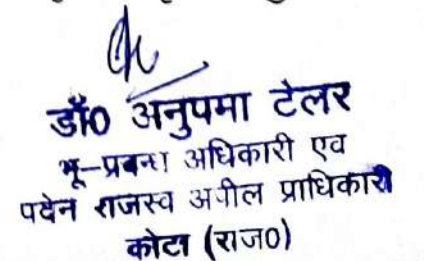 डॉ0 अनुपमा टेलर
भू-प्रबन्ध अधिकारी एव
पदेन राजस्व अपील प्राधिकारी
कोटा (राज0)